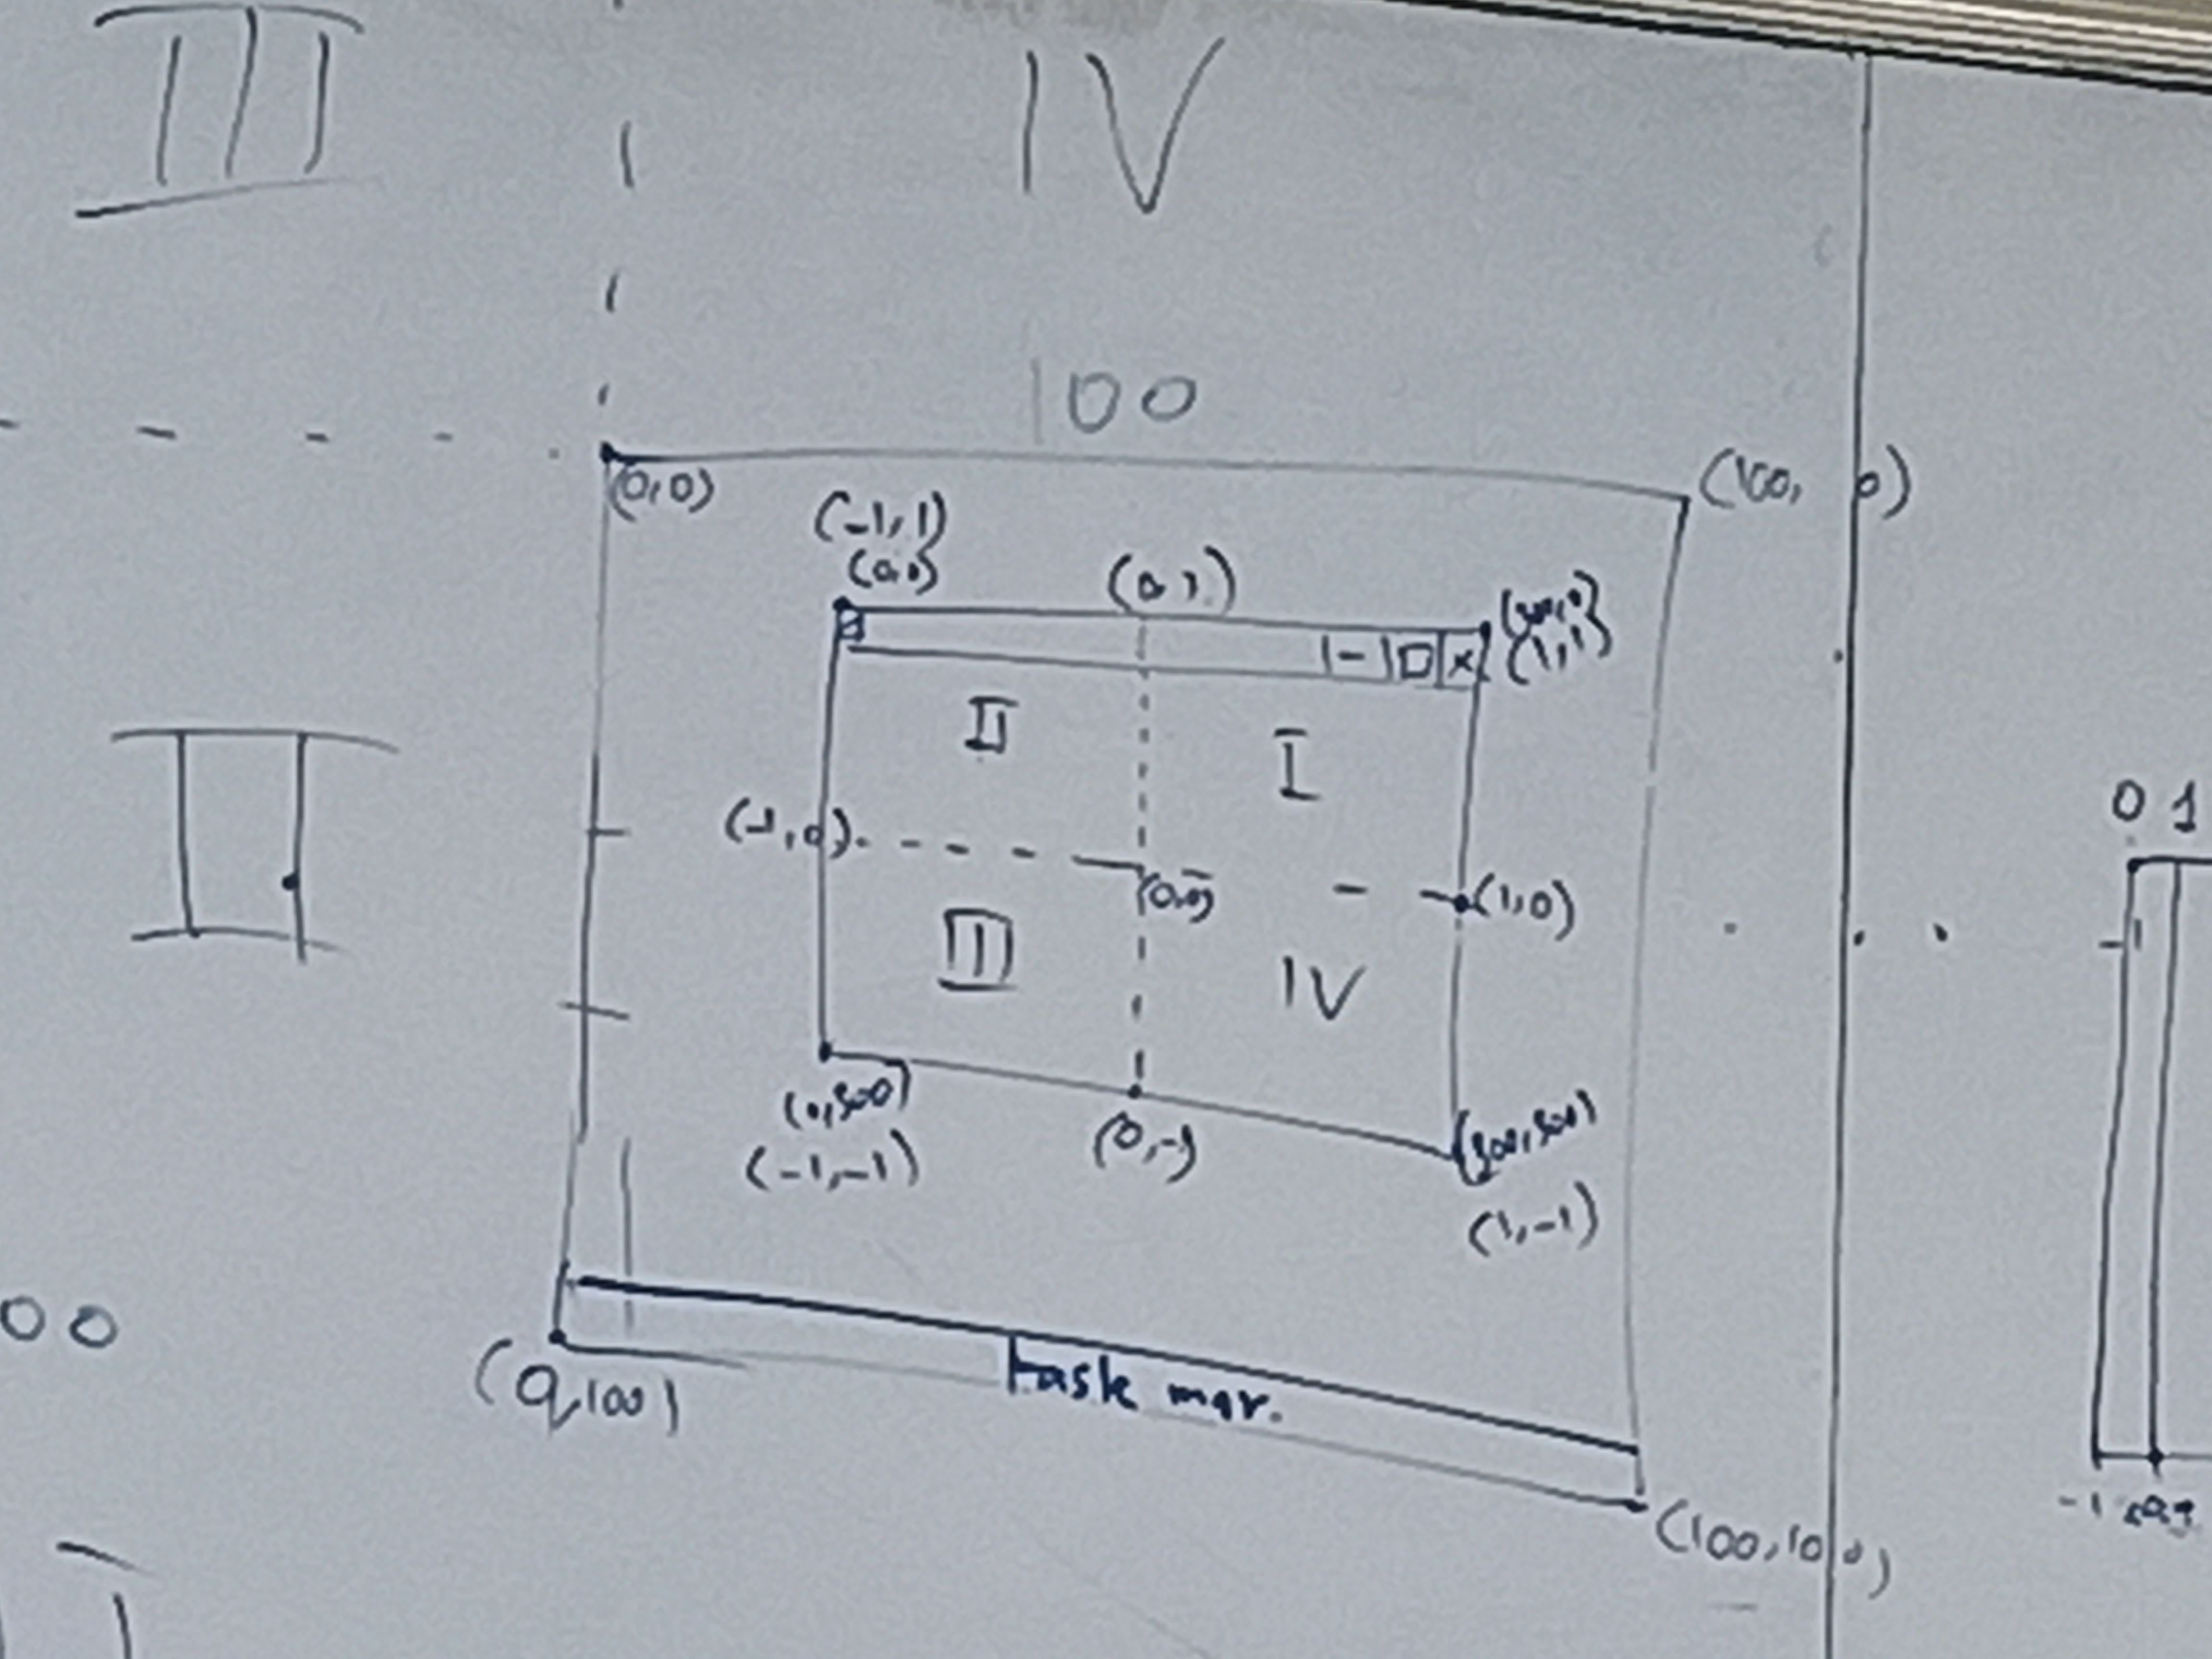 III IV
100
(0,0) (100, 0)
(-1,1)
(0,0) (0,1)
(1,1)
- □ x
II I
II
(-1,0) (0,0) (1,0)
III IV
(0,500) (0,-1) (500,500)
(-1,-1) (1,-1)
00
(0,100) task mgr.
(100,100)
0 1
-1